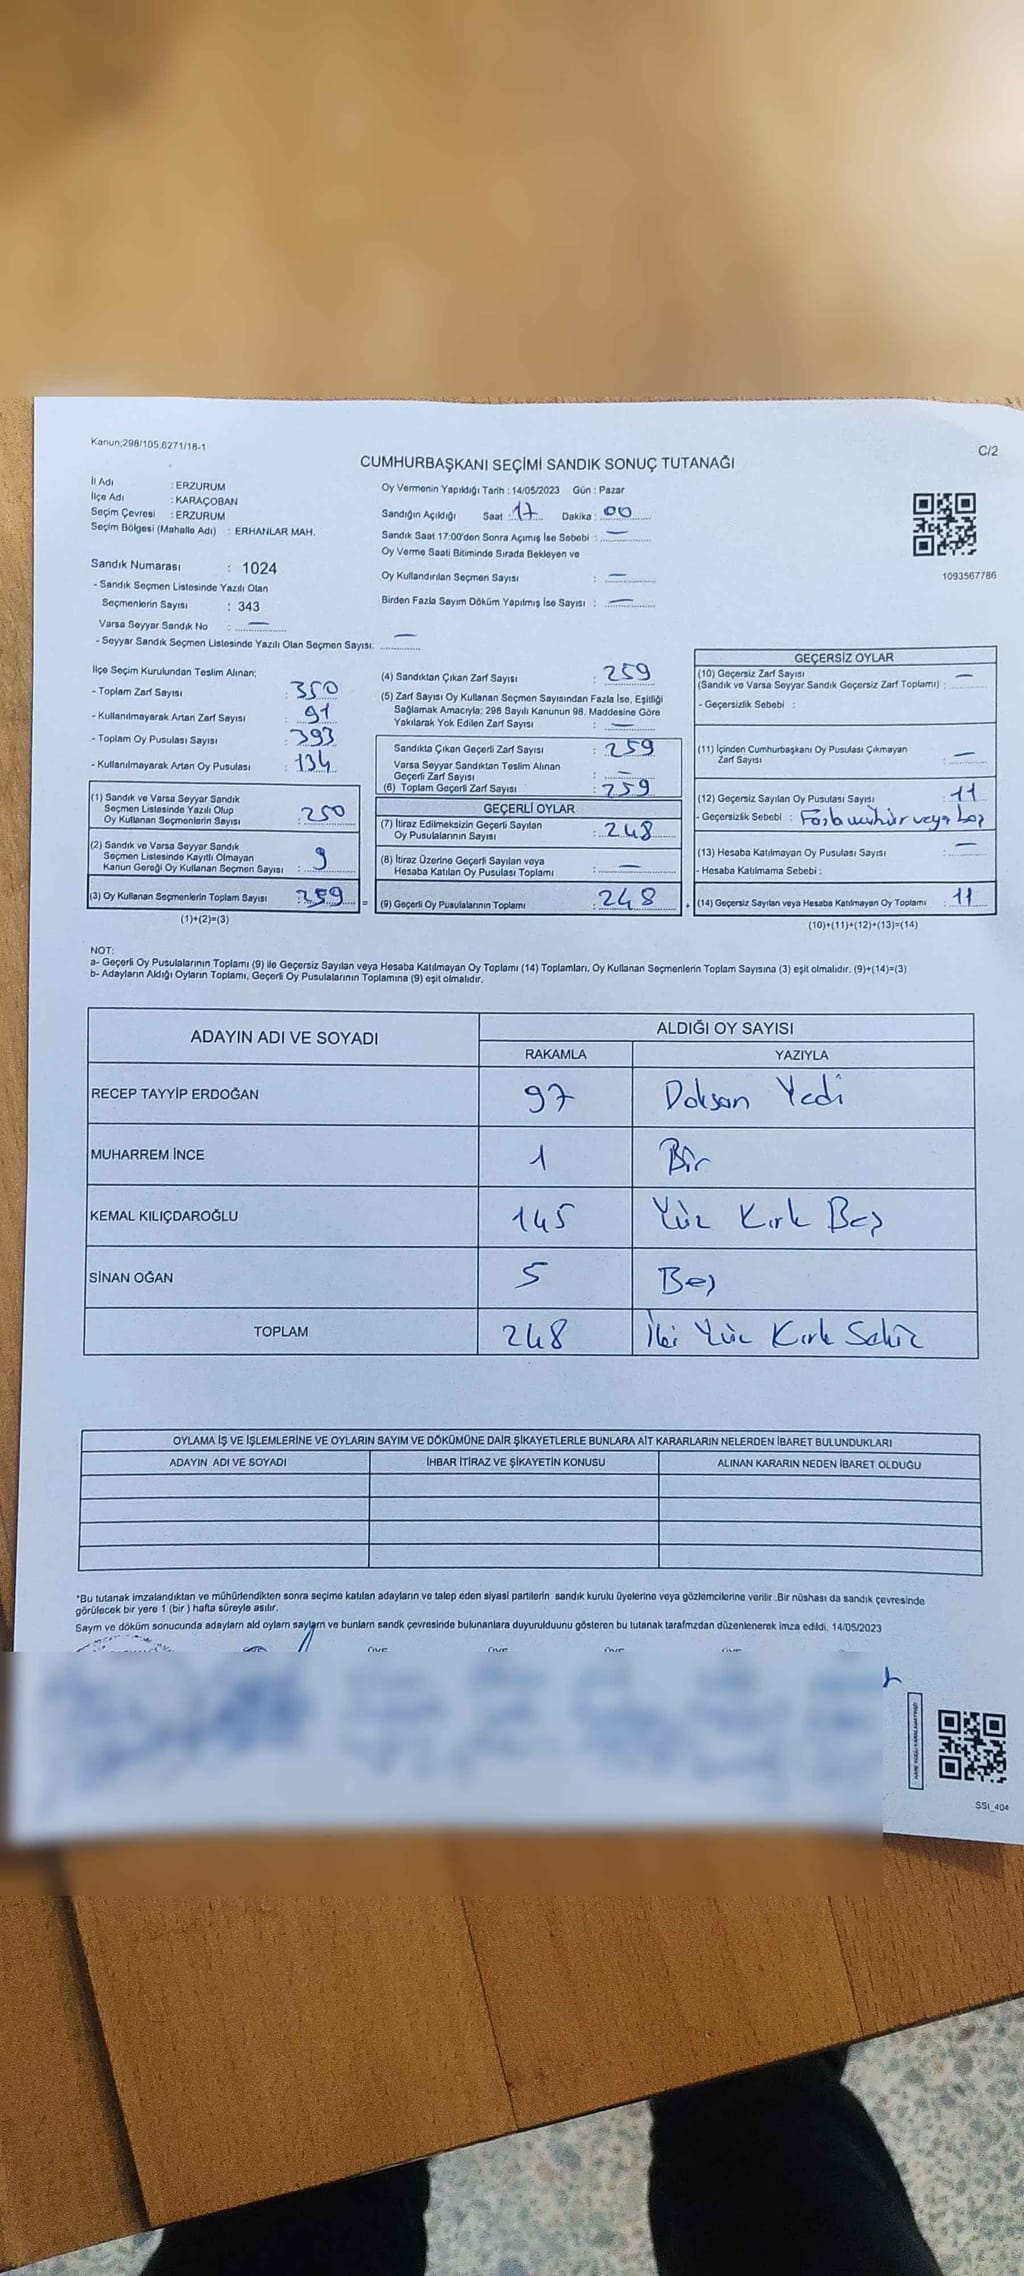 Kanun;298/105;6271/18-1
C/2
CUMHURBAŞKANI SEÇİMİ SANDIK SONUÇ TUTANAĞI
İl Adı : ERZURUM
İlçe Adı : KARAÇOBAN
Seçim Çevresi : ERZURUM
Seçim Bölgesi (Mahalle Adı) : ERHANLAR MAH.
Sandık Numarası : 1024
- Sandık Seçmen Listesinde Yazılı Olan
Seçmenlerin Sayısı : 343
Varsa Seyyar Sandık No : —
- Seyyar Sandık Seçmen Listesinde Yazılı Olan Seçmen Sayısı: —
Oy Vermenin Yapıldığı Tarih : 14/05/2023 Gün : Pazar
Sandığın Açıldığı Saat : 17 Dakika : 00
Sandık Saat 17:00'den Sonra Açımış İse Sebebi : —
Oy Verme Saati Bitiminde Sırada Bekleyen ve
Oy Kullandırılan Seçmen Sayısı : —
Birden Fazla Sayım Döküm Yapılmış İse Sayısı : —
1093567786
İlçe Seçim Kurulundan Teslim Alınan;
- Toplam Zarf Sayısı : 350
- Kullanılmayarak Artan Zarf Sayısı : 91
- Toplam Oy Pusulası Sayısı : 393
- Kullanılmayarak Artan Oy Pusulası : 134
(1) Sandık ve Varsa Seyyar Sandık
Seçmen Listesinde Yazılı Olup
Oy Kullanan Seçmenlerin Sayısı : 250
(2) Sandık ve Varsa Seyyar Sandık
Seçmen Listesinde Kayıtlı Olmayan
Kanun Gereği Oy Kullanan Seçmen Sayısı : 9
(3) Oy Kullanan Seçmenlerin Toplam Sayısı : 259 =
(1)+(2)=(3)
(4) Sandıktan Çıkan Zarf Sayısı : 259
(5) Zarf Sayısı Oy Kullanan Seçmen Sayısından Fazla İse, Eşitliği
Sağlamak Amacıyla; 298 Sayılı Kanunun 98. Maddesine Göre
Yakılarak Yok Edilen Zarf Sayısı : —
Sandıkta Çıkan Geçerli Zarf Sayısı : 259
Varsa Seyyar Sandıktan Teslim Alınan
Geçerli Zarf Sayısı : —
(6) Toplam Geçerli Zarf Sayısı : 259
GEÇERLİ OYLAR
(7) İtiraz Edilmeksizin Geçerli Sayılan
Oy Pusulalarının Sayısı : 248
(8) İtiraz Üzerine Geçerli Sayılan veya
Hesaba Katılan Oy Pusulası Toplamı : —
(9) Geçerli Oy Pusulalarının Toplamı : 248 +
GEÇERSİZ OYLAR
(10) Geçersiz Zarf Sayısı
(Sandık ve Varsa Seyyar Sandık Geçersiz Zarf Toplamı) : —
- Geçersizlik Sebebi :
(11) İçinden Cumhurbaşkanı Oy Pusulası Çıkmayan
Zarf Sayısı : —
(12) Geçersiz Sayılan Oy Pusulası Sayısı : 11
- Geçersizlik Sebebi : Fazla mühür veya boş
(13) Hesaba Katılmayan Oy Pusulası Sayısı : —
- Hesaba Katılmama Sebebi :
(14) Geçersiz Sayılan veya Hesaba Katılmayan Oy Toplamı : 11
(10)+(11)+(12)+(13)=(14)
NOT:
a- Geçerli Oy Pusulalarının Toplamı (9) ile Geçersiz Sayılan veya Hesaba Katılmayan Oy Toplamı (14) Toplamları, Oy Kullanan Seçmenlerin Toplam Sayısına (3) eşit olmalıdır. (9)+(14)=(3)
b- Adayların Aldığı Oyların Toplamı, Geçerli Oy Pusulalarının Toplamına (9) eşit olmalıdır.
ADAYIN ADI VE SOYADI ALDIĞI OY SAYISI
RAKAMLA YAZIYLA
RECEP TAYYİP ERDOĞAN 97 Doksan Yedi
MUHARREM İNCE 1 Bir
KEMAL KILIÇDAROĞLU 145 Yüz Kırk Beş
SİNAN OĞAN 5 Beş
TOPLAM 248 İki Yüz Kırk Sekiz
OYLAMA İŞ VE İŞLEMLERİNE VE OYLARIN SAYIM VE DÖKÜMÜNE DAİR ŞİKAYETLERLE BUNLARA AİT KARARLARIN NELERDEN İBARET BULUNDUKLARI
ADAYIN ADI VE SOYADI İHBAR İTİRAZ VE ŞİKAYETİN KONUSU ALINAN KARARIN NEDEN İBARET OLDUĞU
*Bu tutanak imzalandıktan ve mühürlendikten sonra seçime katılan adayların ve talep eden siyasi partilerin sandık kurulu üyelerine veya gözlemcilerine verilir .Bir nüshası da sandık çevresinde
görülecek bir yere 1 (bir ) hafta süreyle asılır.
Sayım ve döküm sonucunda adayların ald oyların sayların ve bunların sandk çevresinde bulunanlara duyurulduunu gösteren bu tutanak tarafımzdan düzenlenerek imza edildi. 14/05/2023
SSİ_404